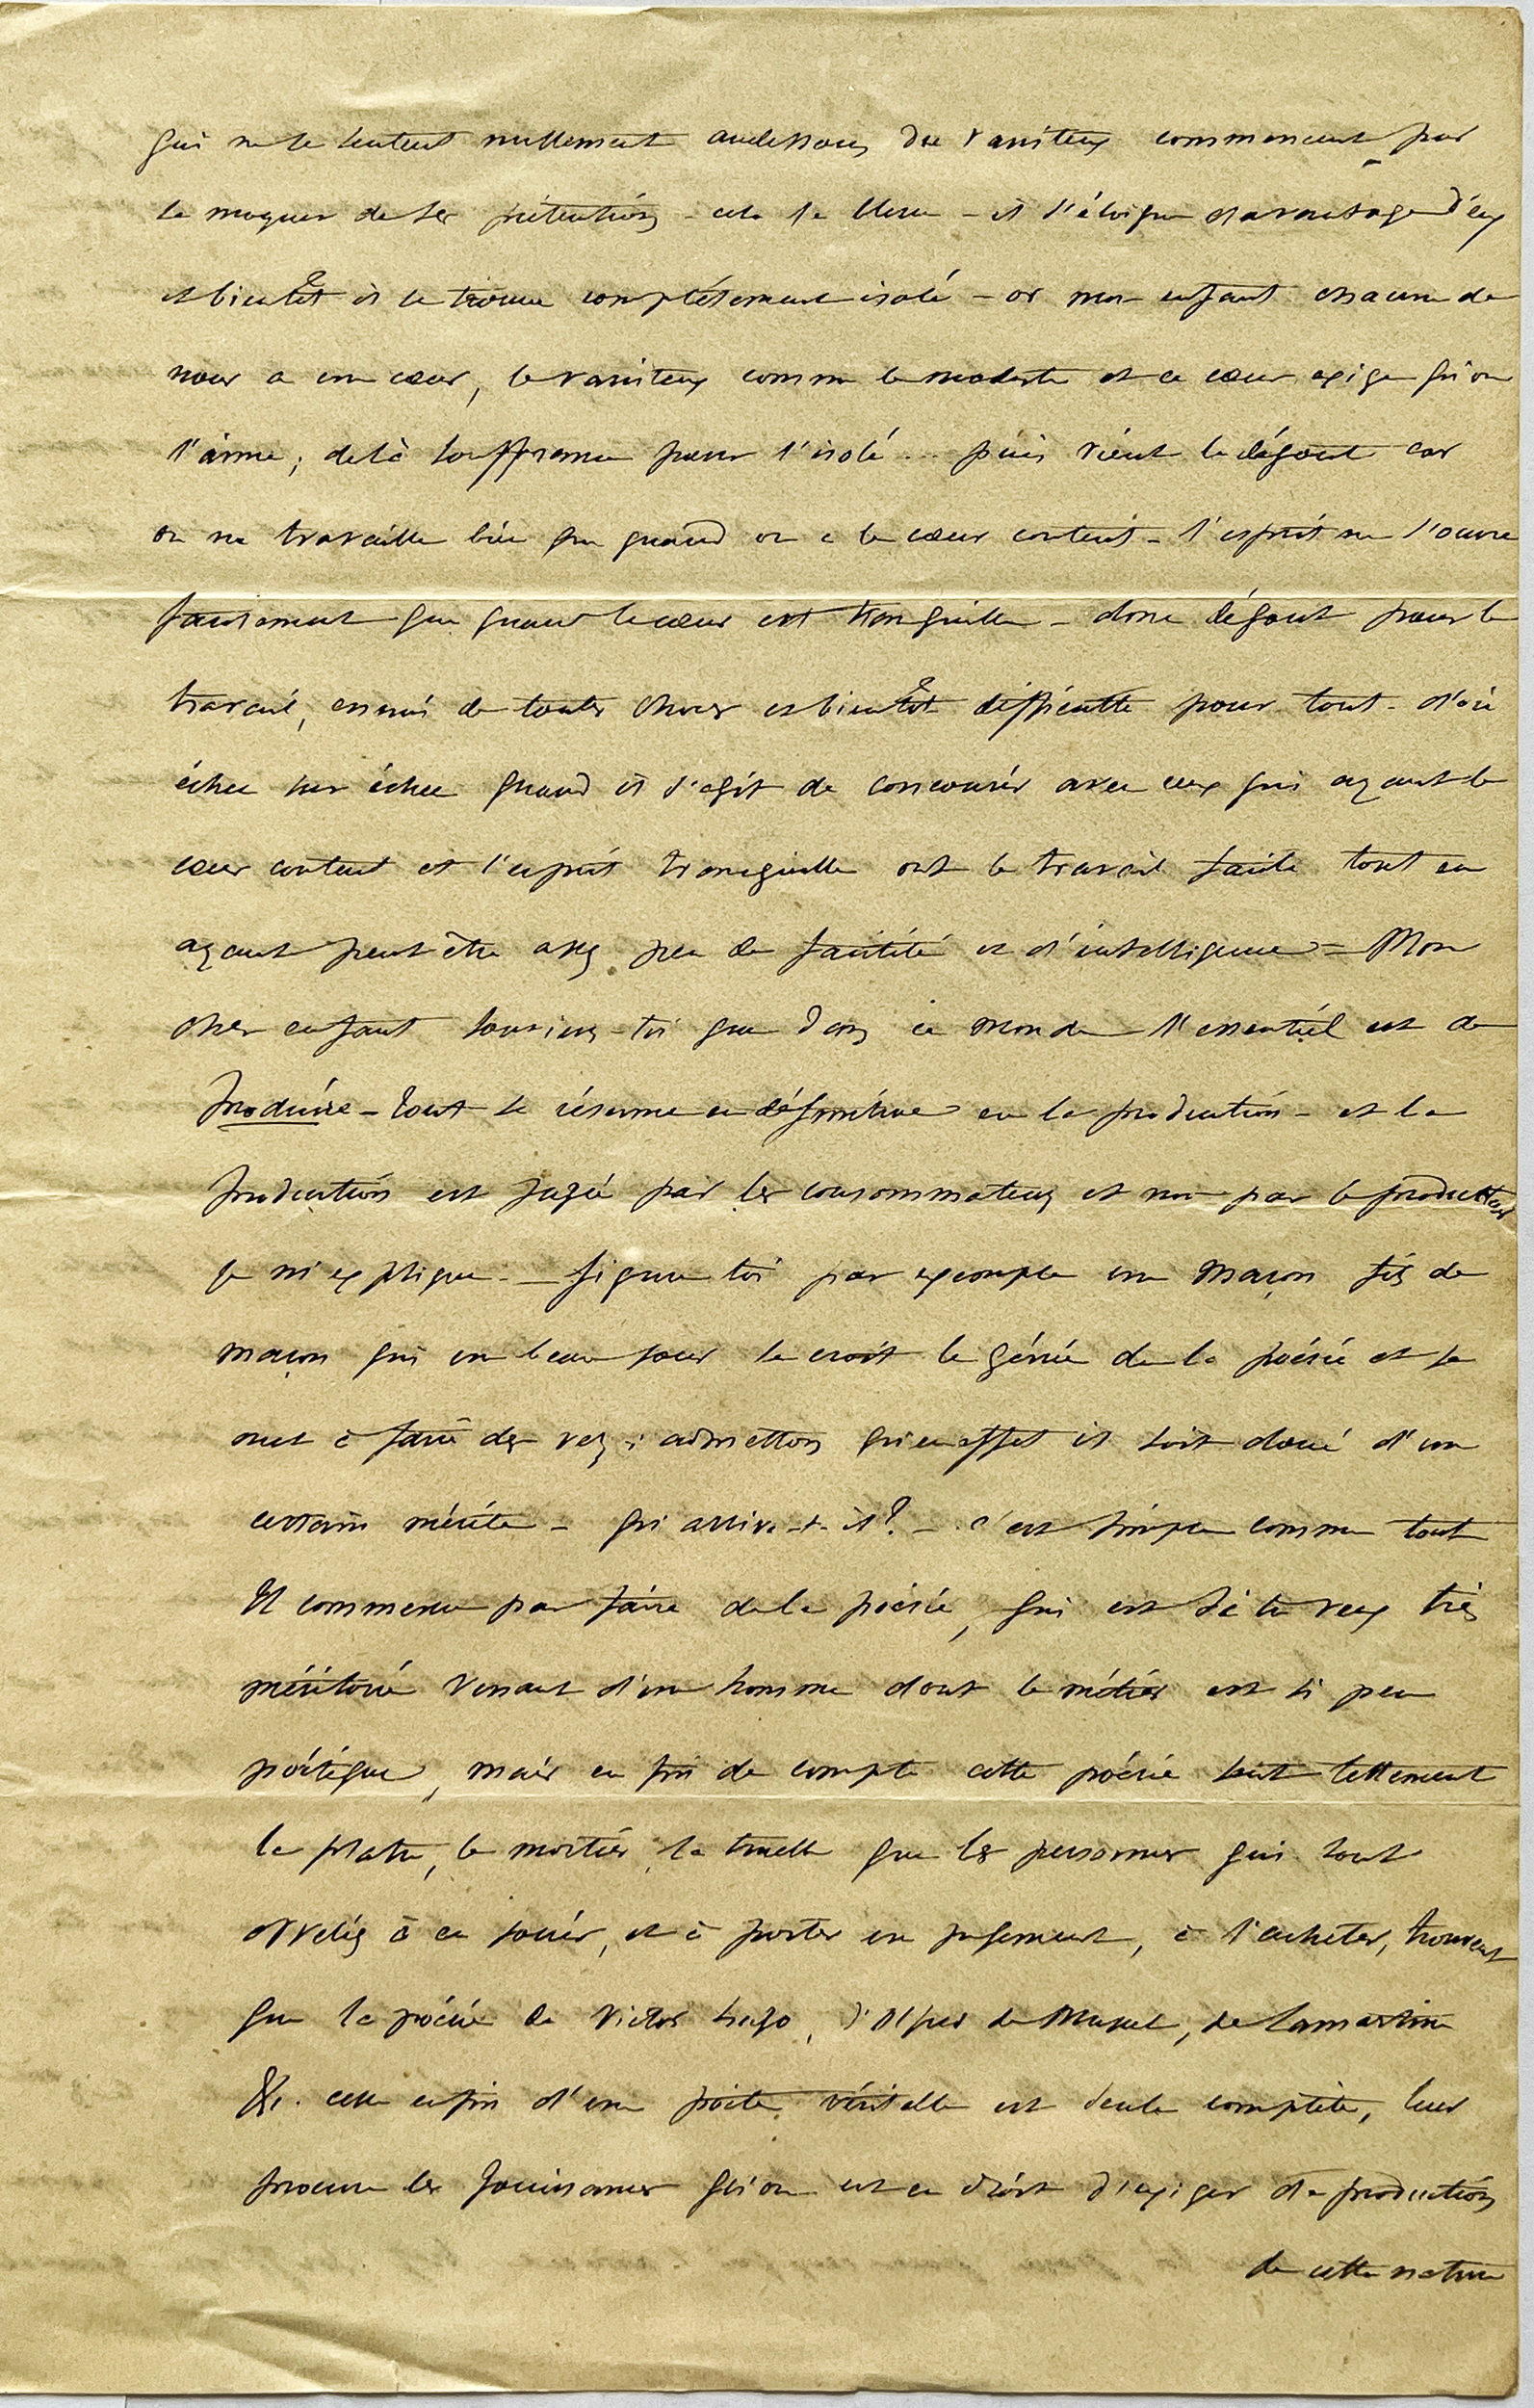 qui ne se sentent nullement audessous du vaniteux commencent par
se moquer de ses prétentions - cela le blesse - il s'éloigne davantage d'eux
et bientôt il se trouve complétement isolé - or mon enfant chacun de
nous a un cœur, le vaniteux comme le modeste et ce cœur exige qu'on
l'aime ; de là souffrance pour l'isolé ... puis vient le dégout car
on ne travaille bien que quand on a le cœur content - l'esprit ne s'ouvre
facilement que quand le cœur est tranquille - donc dégout pour le
travail, ennui de toutes choses et bientôt difficulté pour tout - d'où
échec sur échec quand il s'agit de concourir avec ceux qui ayant le
cœur content et l'esprit tranquille ont le travail facile tout en
ayant peut être assez peu de facilité et d'intelligence = Mon
cher enfant souviens-toi que dans ce monde l'essentiel est de
produire - tout se résume en définitive en la production - et la
production est jugée par les consommateurs et non par le producteur
je m'explique - figure toi par exemple un maçon fils de
maçon qui un beau jour se croit le génie de la poésie et se
met à faire des vers ; admettons qu'en effet il soit doué d'un
certain mérite - qu'arrive-t-il ? - c'est simple comme tout
Il commence par faire de la poésie, qui est si tu veux très
méritoire venant d'un homme dont le métier est si peu
poétique, mais en fin de compte cette poésie sent tellement
le platre, le mortier, la truelle que les personnes qui sont
appelés à en jouir, et à porter un jugement, à l'acheter, trouvent
que la poésie de Victor hugo, d'Alfred de Musset, de Lamartine
&c. celle enfin d'un poête véritable est seule complète, leur
procure les jouissances qu'on est en droit d'exiger de productions
de cette nature